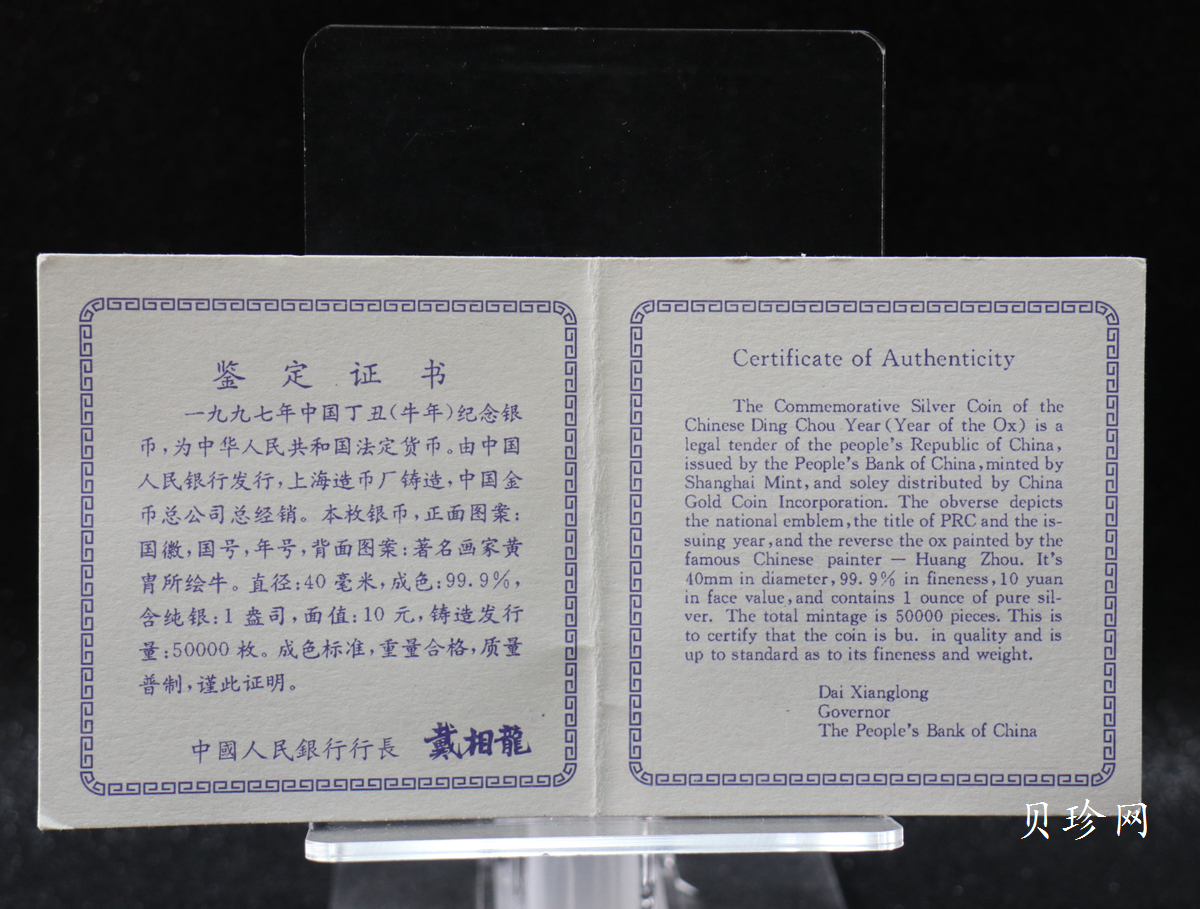 鉴定证书
一九九七年中国丁丑(牛年)纪念银
币,为中华人民共和国法定货币。由中国
人民银行发行,上海造币厂铸造,中国金
币总公司总经销。本枚银币,正面图案:
国徽,国号,年号,背面图案:著名画家黄
胄所绘牛。直径:40毫米,成色:99.9%,
含纯银:1盎司,面值:10元,铸造发行
量:50000枚。成色标准,重量合格,质量
普制,谨此证明。
中國人民銀行行長 戴相龍
Certificate of Authenticity
The Commemorative Silver Coin of the
Chinese Ding Chou Year(Year of the Ox) is a
legal tender of the people's Republic of China,
issued by the People's Bank of China,minted by
Shanghai Mint,and soley distributed by China
Gold Coin Incorporation. The obverse depicts
the national emblem,the title of PRC and the is-
suing year,and the reverse the ox painted by the
famous Chinese painter — Huang Zhou. It's
40mm in diameter,99.9% in fineness,10 yuan
in face value,and contains 1 ounce of pure sil-
ver. The total mintage is 50000 pieces. This is
to certify that the coin is bu. in quality and is
up to standard as to its fineness and weight.
Dai Xianglong
Governor
The People's Bank of China
贝珍网